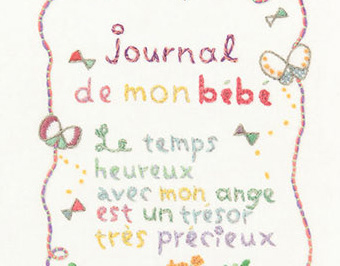 Journal
de mon bébé
Le temps
heureux
avec mon ange
est un trésor
très précieux